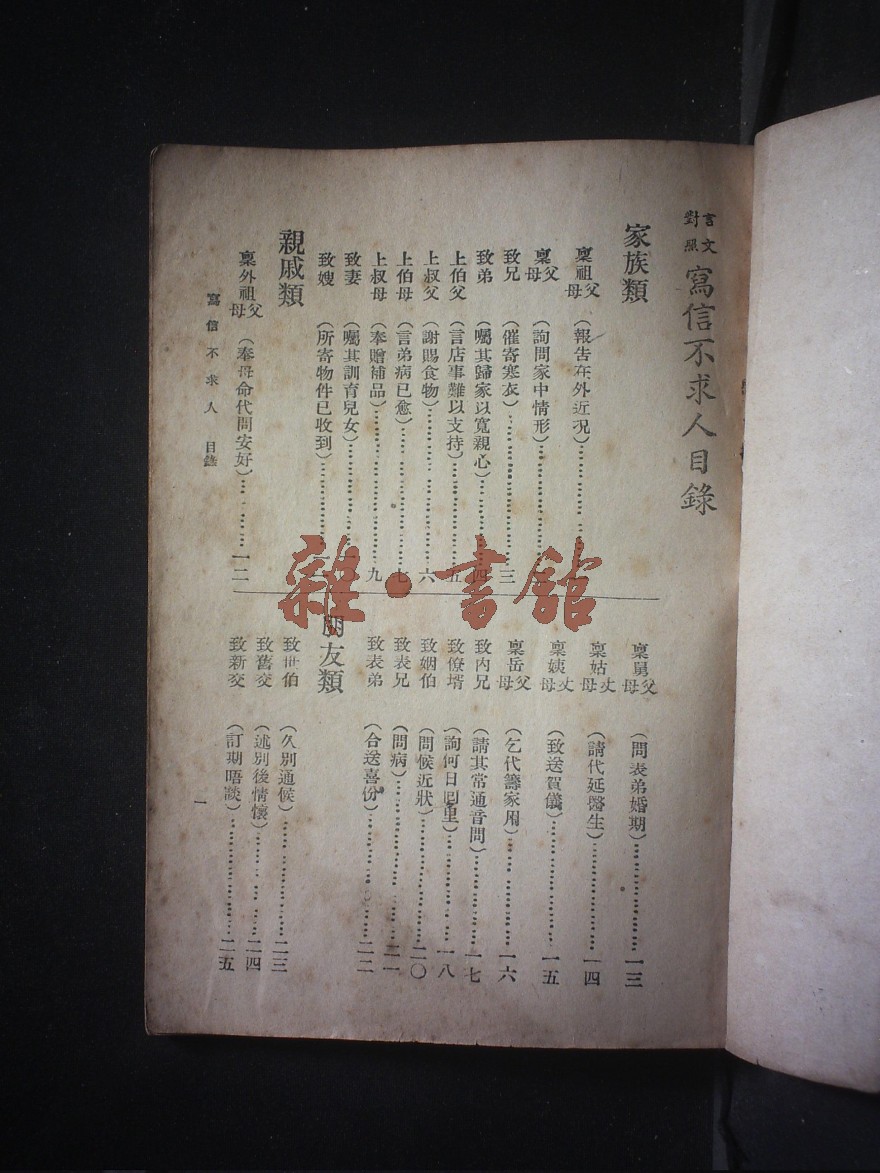 言文對照 寫信不求人目錄
家族類
稟祖父母 (報告在外近況)
稟父母 (詢問家中情形)
致兄 (催寄寒衣)……三
致弟 (囑其歸家以寬親心)……四
上伯父 (言店事難以支持)……五
上叔父 (謝賜食物)……六
上伯母 (言弟病已愈)……七
上叔母 (奉贈補品)……九
致妻 (囑其訓育兒女)
致嫂 (所寄物件已收到)
親戚類
稟外祖父母 (奉母命代問安好)……一二
稟舅父母 (問表弟婚期)……一三
稟姑丈母 (請代延醫生)……一四
稟姨丈母 (致送賀儀)……一五
稟岳父母 (乞代籌家用)……一六
致內兄 (請其常通音問)……一七
致僚壻 (詢何日回里)……一八
致姻伯 (問候近狀)……二〇
致表兄 (問病)……二一
致表弟 (合送喜份)……二二
朋友類
致世伯 (久別通候)……二三
致舊交 (述別後情懷)……二四
致新交 (訂期晤談)……二五
寫信不求人 目錄
一
雜·書館